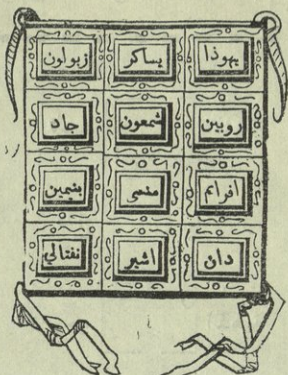 يهوذا يساكر زبولون
روبين شمعون جاد
افرايم منسى بنيمين
دان اشير نفتالي